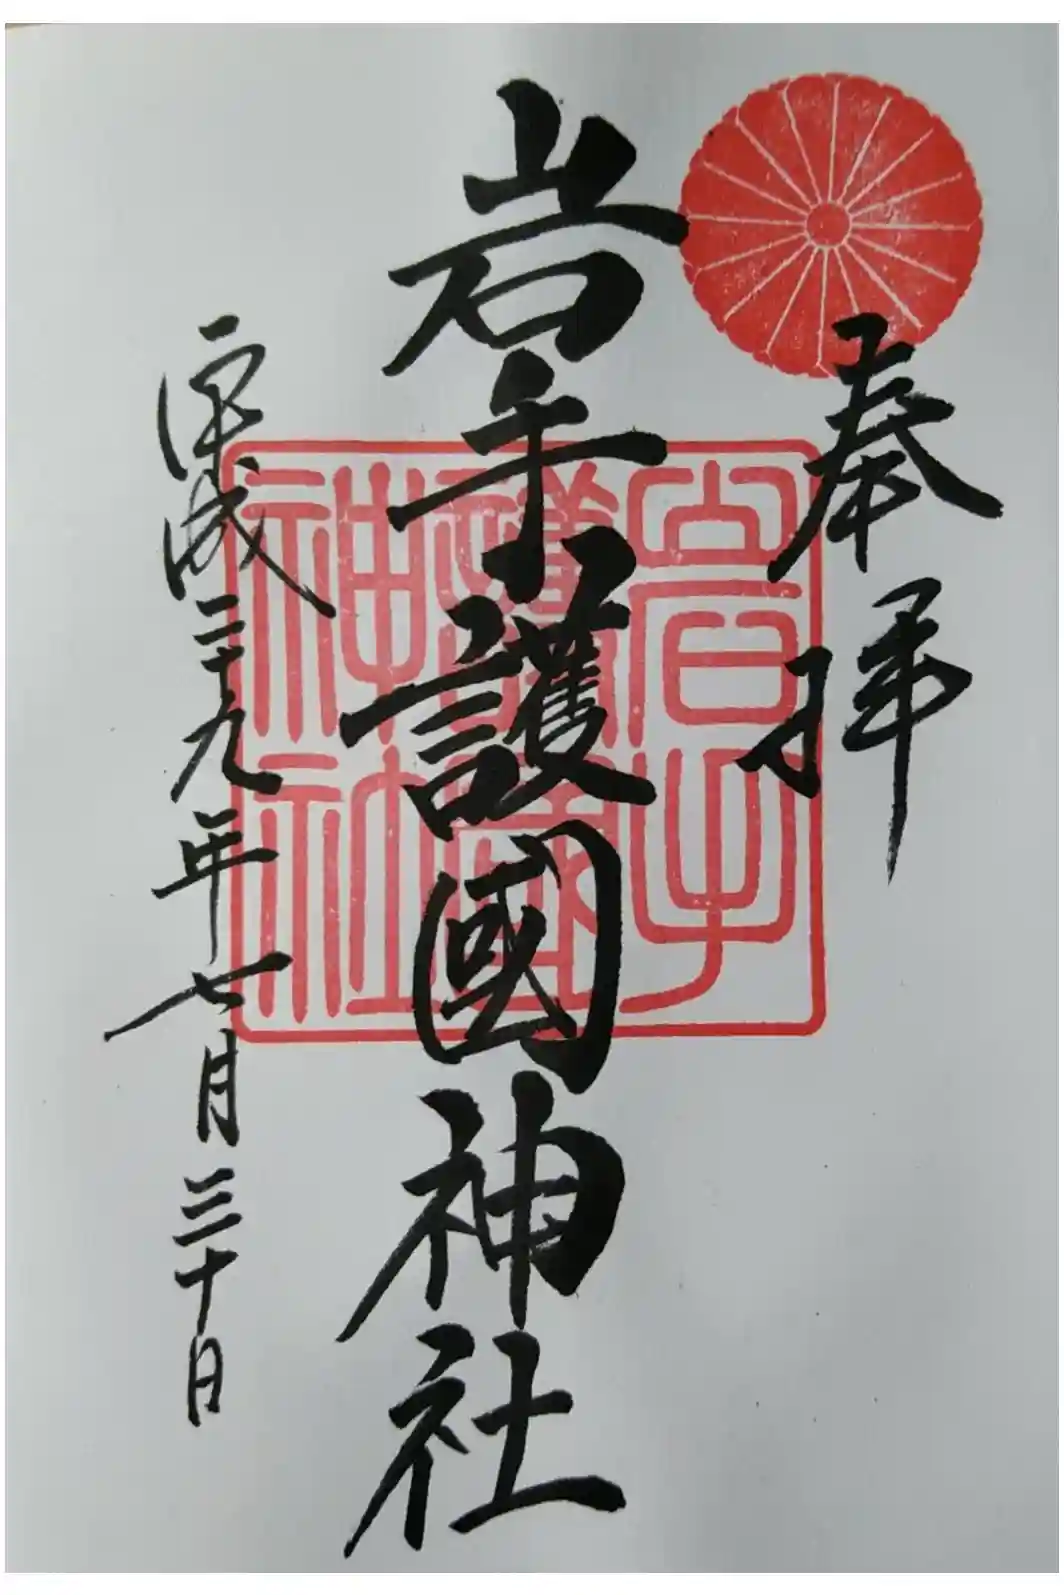 奉拝
岩手護國神社
平成二十九年七月三十日
岩手
護國
神社